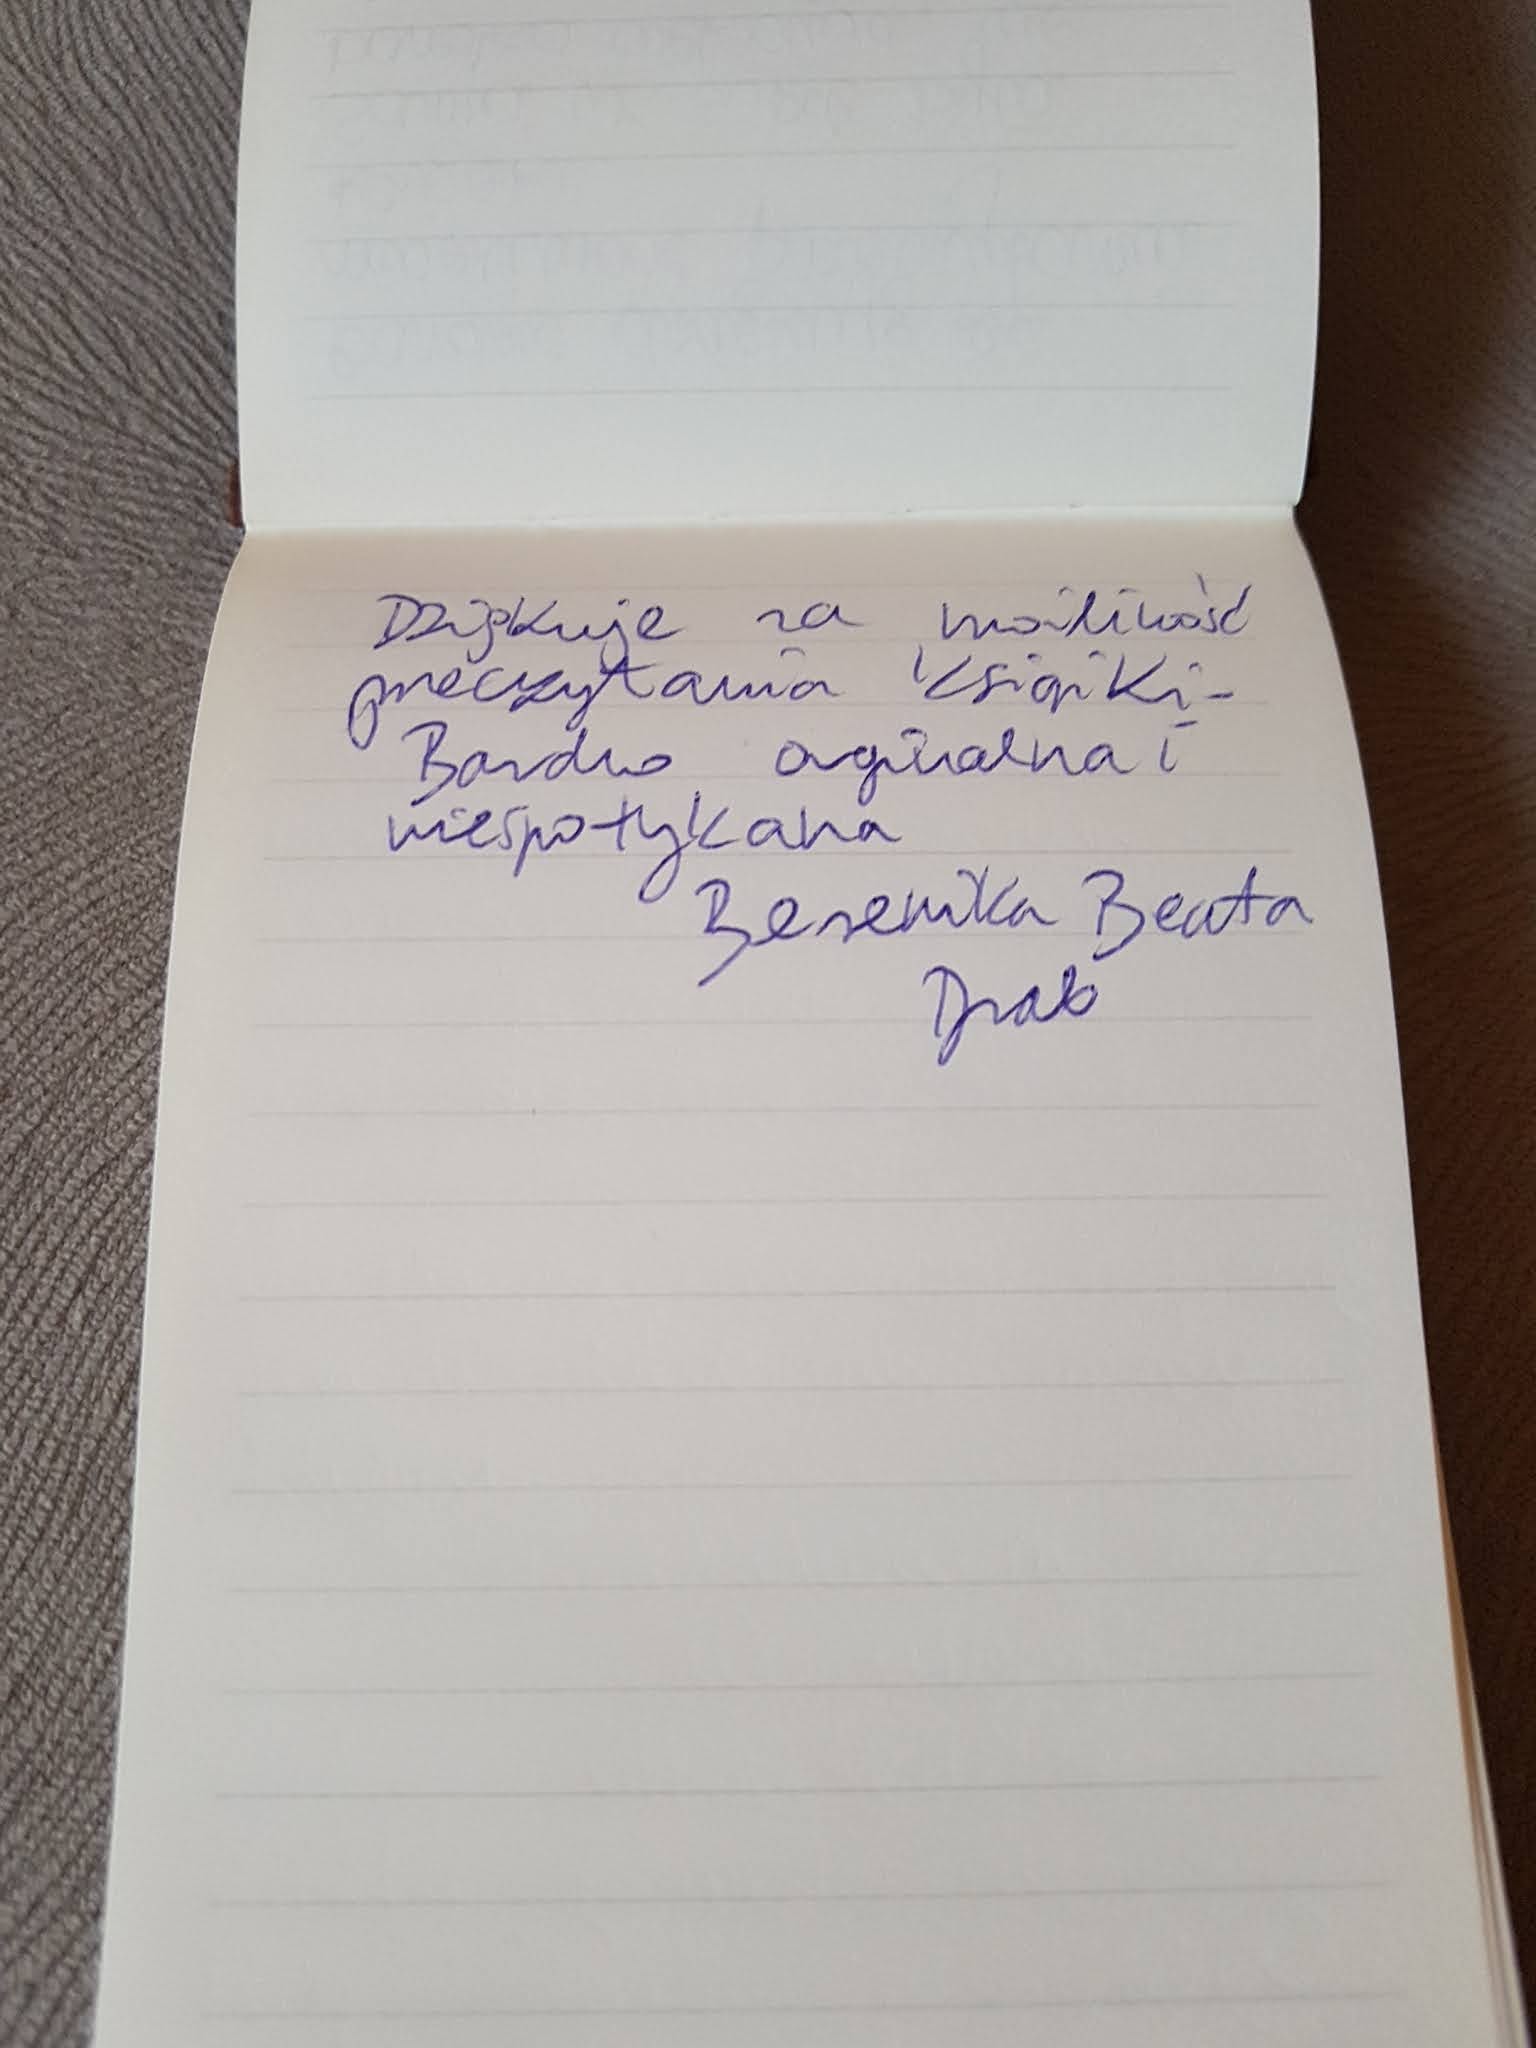 Dziękuje za możliwość
przeczytania książki -
Bardzo orginalna i
niespotykana
Berenika Beata
Drab